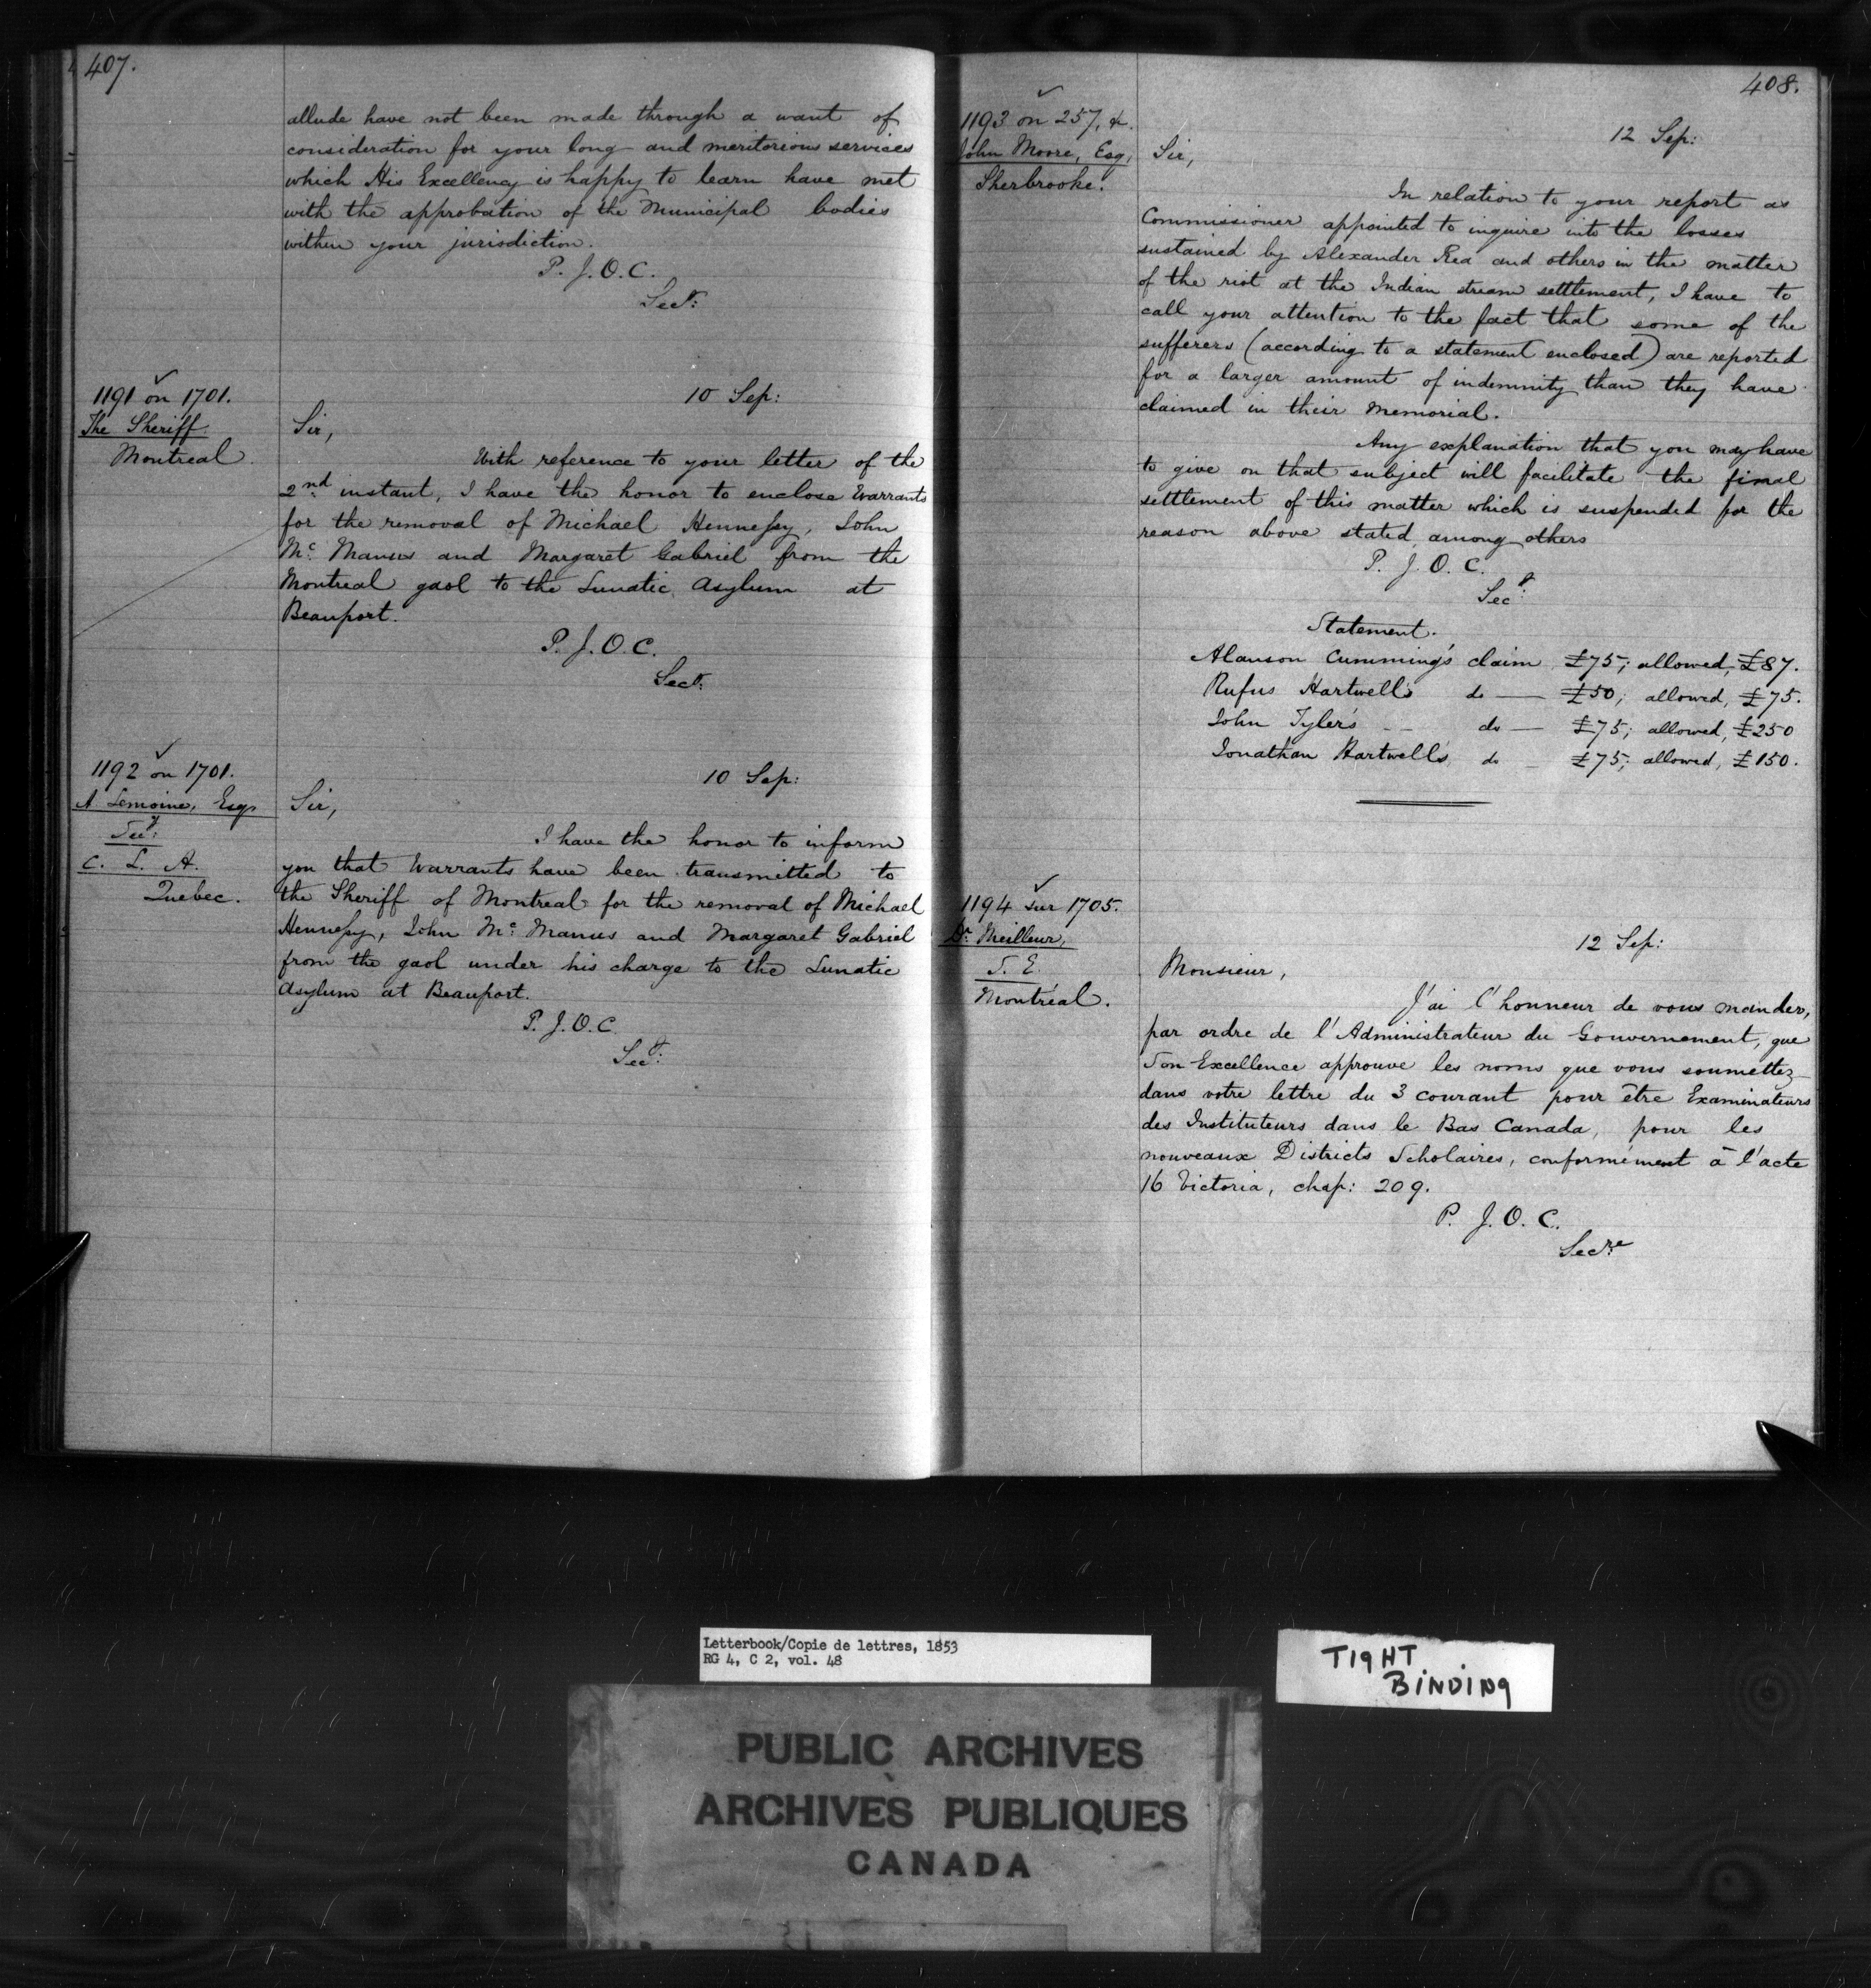 407.
allude have not been made through a want of
consideration for your long and meritorious services
which His Excellency is happy to learn have met
with the approbation of the Municipal bodies
within your jurisdiction.
P. J. O. C.
Secy:
1191 on 1701.
The Sheriff
Montreal
10 Sep:
Sir,
With reference to your letter of the
2nd instant, I have the honor to enclose Warrants
for the removal of Michael Hennessy, John
Mc Manus and Margaret Gabriel from the
Montreal gaol to the Lunatic Asylum at
Beauport.
P. J. O. C.
Secy:
1192 on 1701.
A Lemoine, Esqr
Secy:
C. L. A.
Quebec.
10 Sep:
Sir,
I have the honor to inform
you that Warrants have been transmitted to
the Sheriff of Montreal for the removal of Michael
Hennessy, John Mc Manus and Margaret Gabriel
from the gaol under his charge to the Lunatic
Asylum at Beauport.
P. J. O. C.
Secy:
408.
1193 on 257, &.
John Moore, Esq,
Sherbrooke.
12 Sep:
Sir,
In relation to your report as
Commissioner appointed to inquire into the losses
sustained by Alexander Rea and others in the matter
of the riot at the Indian stream settlement, I have to
call your attention to the fact that some of the
sufferers (according to a statement enclosed) are reported
for a larger amount of indemnity than they have
claimed in their Memorial.
Any explanation that you may have
to give on that subject will facilitate the final
settlement of this matter which is suspended for the
reason above stated, among others
P. J. O. C.
Secy:
Statement.
Alanson Cumming's claim £75; allowed, £87.
Rufus Hartwell's do — £50; allowed, £75.
John Tyler's — do — £75; allowed, £250
Jonathan Hartwell's do — £75; allowed, £150.
1194 sur 1705.
Dr. Meilleur,
S. E.
Montréal.
12 Sep:
Monsieur,
J'ai l'honneur de vous mander,
par ordre de l'Administrateur du Gouvernement, que
Son Excellence approuve les noms que vous soumettez
dans votre lettre du 3 courant pour être Examinateurs
des Instituteurs dans le Bas Canada, pour les
nouveaux Districts Scholaires, conformément à l'acte
16 Victoria, chap: 209.
P. J. O. C.
Secre
Letterbook/Copie de lettres, 1853
RG 4, C 2, vol. 48
TIGHT
BINDING
PUBLIC ARCHIVES
ARCHIVES PUBLIQUES
CANADA